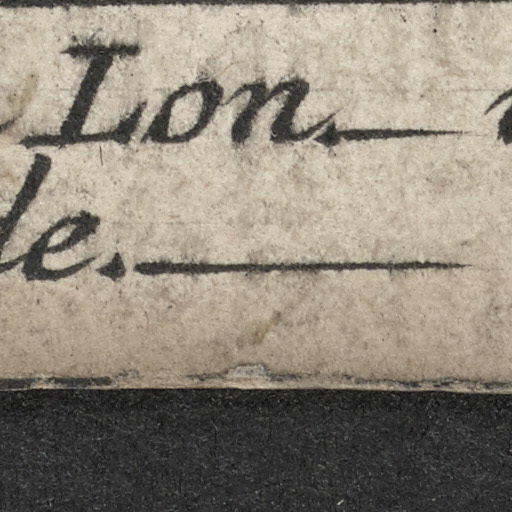 Lon.
de.